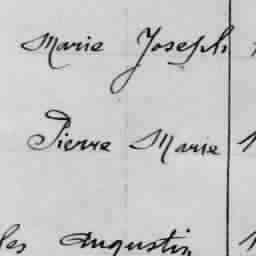 Marie Joseph
Pierre Marie
les Augustin